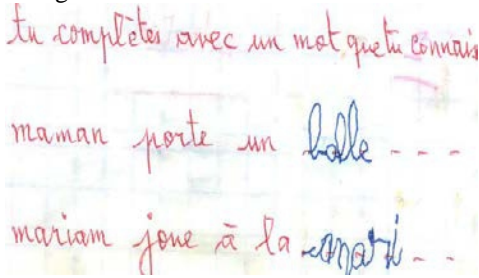 tu complètes avec un mot que tu connais
maman porte un balle - - - -
mariam joue à la mari - -